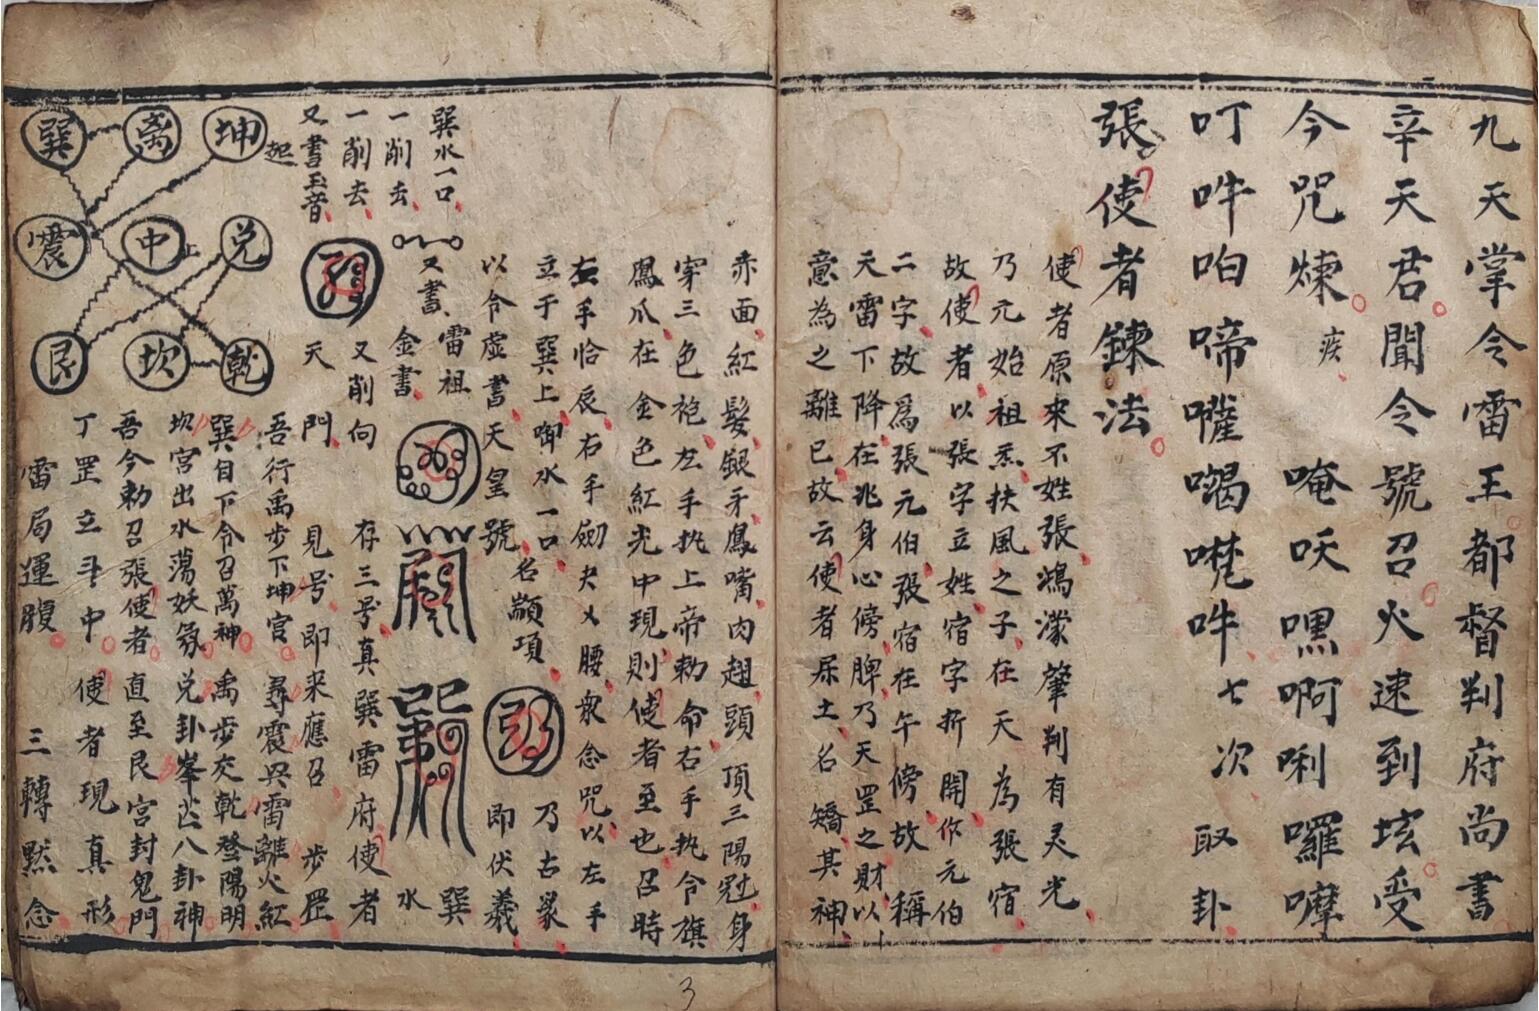 九天掌令雷王都督判府尚書
辛天君聞令號召火速到垓受
今咒煉 疾 唵吙嘿啊唎囉嚤
叮吽咱啼囉噶吽七次 取卦
張使者鍊法
使者原來不姓張鴻濛肇判有灵光
乃元始祖炁扶風之子在天為張宿
故使者以張字立姓宿字折開作元伯
二字故爲張元伯張宿在午傍故稱
天雷下降在兆身心傍脾乃天罡之財以
意為之離已故云使者尿土名矯其神
赤面紅髮銀牙鳳嘴肉翅頭頂三陽冠身
穿三色袍左手执上帝勅命右手执令旗
鳳爪在金色紅光中現則使者至也召時
左手恰辰右手劍叉腰衆念咒以左手
立于巽上啣水一口名顓頊乃古聖
以令虛書天皇號即伏羲
巽水一口又書雷祖巽
一削去金書水
一削去又削向存三号真巽雷府使者
又書玉音天門見号即来應召步罡
起吾行禹步下坤宫尋震巽雷離火紅
坤巽目下令召萬神禹步交乾登陽明
兌坎宮出水蕩妖氛兑卦峯芒八卦神
乾吾今勅召張使者直至艮宮封鬼門
離丁罡立斗中使者現真形
中上雷局運腹三轉黙念
坎
巽
震
艮